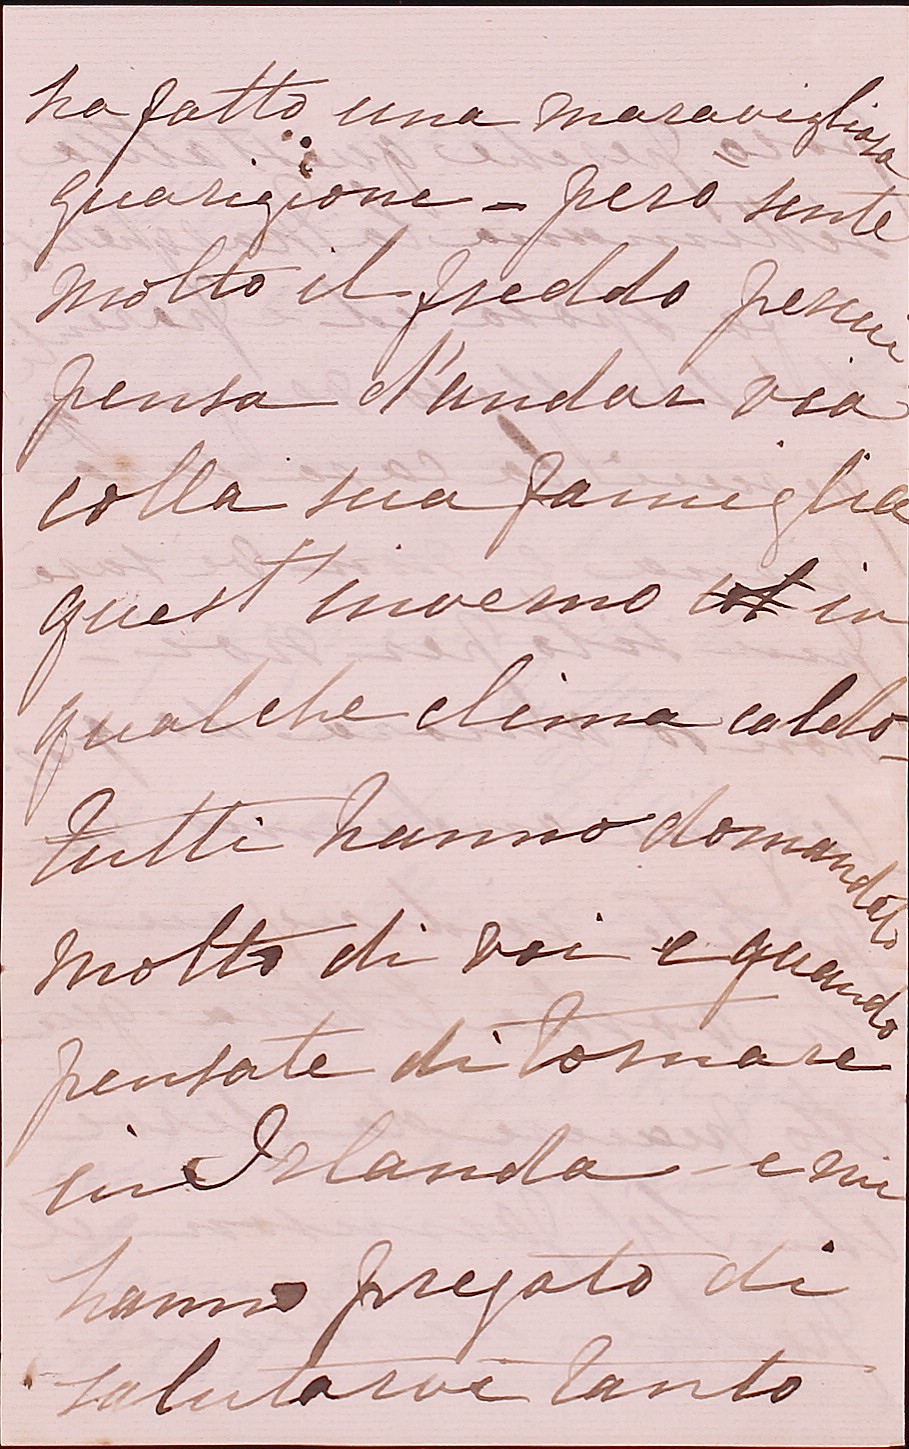 ha fatto una maravigliosa
guarigione - però sente
molto il freddo percui
pensa d'andar via
colla sua famiglia
quest'inverno in
qualche clima caldo -
tutti hanno domandato
molto di voi e quando
pensate di tornare
in Irlanda - e mi
hanno pregato di
salutarvi tanto